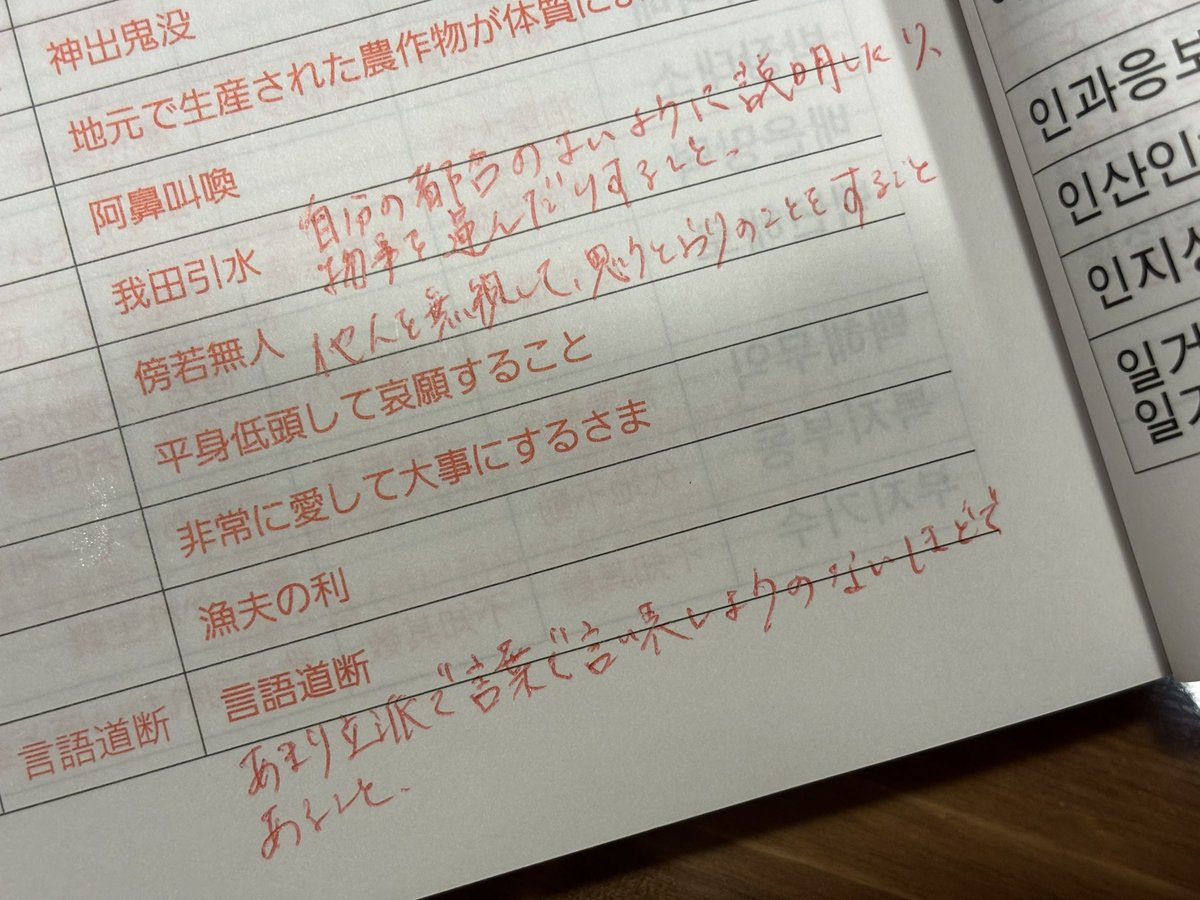 神出鬼没
地元で生産された農作物が体質に
阿鼻叫喚
自分の都合のよいように説明したり、
我田引水
物事を運んだりすること。
傍若無人
他人を無視して、思うとおりのことをすること
平身低頭して哀願すること
非常に愛して大事にするさま
漁夫の利
言語道断
言語道断
あまり立派で言葉で言い表しようのないほどで
あること。
인과응보
인산인
인지상
일거
일거